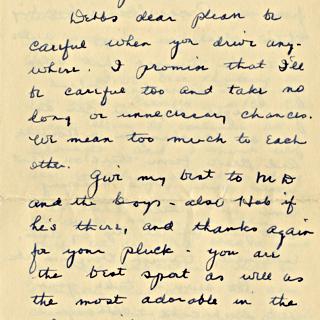 Debbs dear please be
careful when you drive any-
where. I promise that I'll
be careful too and take no
long or unnecessary chances.
We mean too much to each
other.
Give my best to M D
and the boys - also Hob if
he's there, and thanks again
for your pluck - you are
the best sport as well as
the most adorable in the